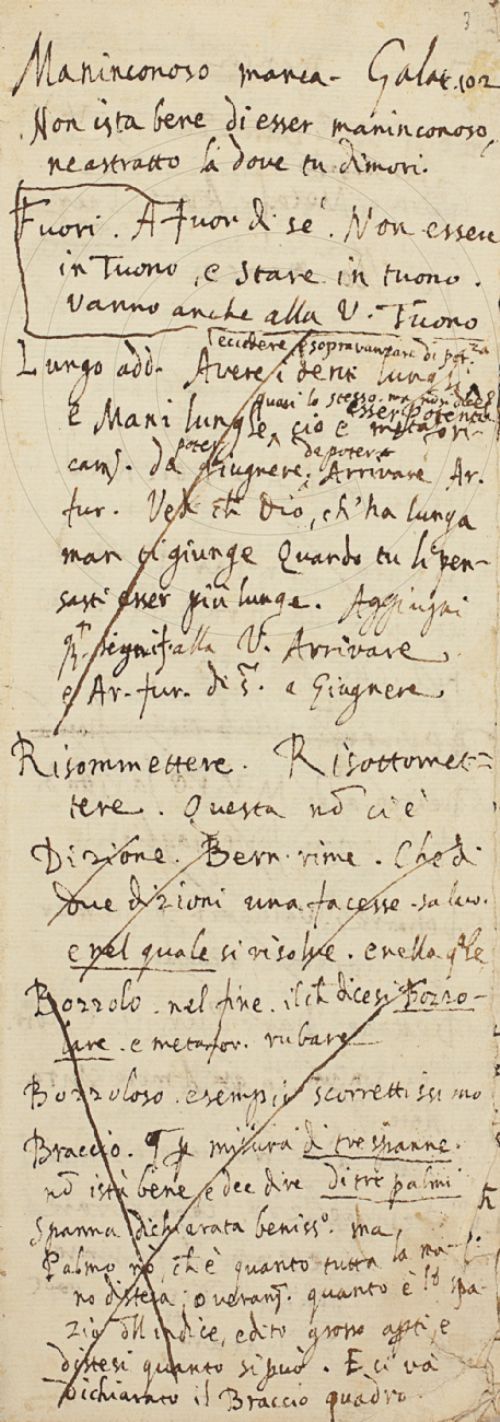 3
Maninconoso manca - Galat. 102
Non ista bene di esser maninconoso,
ne astratto là dove tu dimori.
Fuori. A fuor di se. Non essere
in Tuono, e stare in tuono.
vanno anche alla V. Tuono
eccedere, sopravanzare di
Lungo add. Avere i denti lunghi
quasi lo stesso, ma
esser potente
e Mani lunghe, cio è metafori-
poter da poter
cam. da Giugnere, Arrivare Ar.
fur. Ved ch Dio, ch'ha lunga
man ti giunge Quando tu li pen-
sasti esser più lunge. Aggiugni
signif. alla V. Arrivare
e Ar. fur. di a Giugnere
Risommettere. Risottomet=
tere. Questa nō ci è
Dizione. Bern. rime. Che di
due dizioni una facesse
e nel quale si risolve. e nella qle
Bozzolo. nel fine. il ch dicesi Bozzo-
lare. e metafor. rubare
Bozzoloso. esempio scorrettissimo
Braccio. misura di tre spanne.
nō istà bene, e dee dire di tre palmi
Spanna dichiarata beniss.º ma,
Palmo nò, ch è quanto tutta la ma-
no distesa; overam. quanto è lo spa-
zio dll indice, e dito grosso apti, e
distesi quanto si può. E ci va
dichiarato il Braccio quadro.